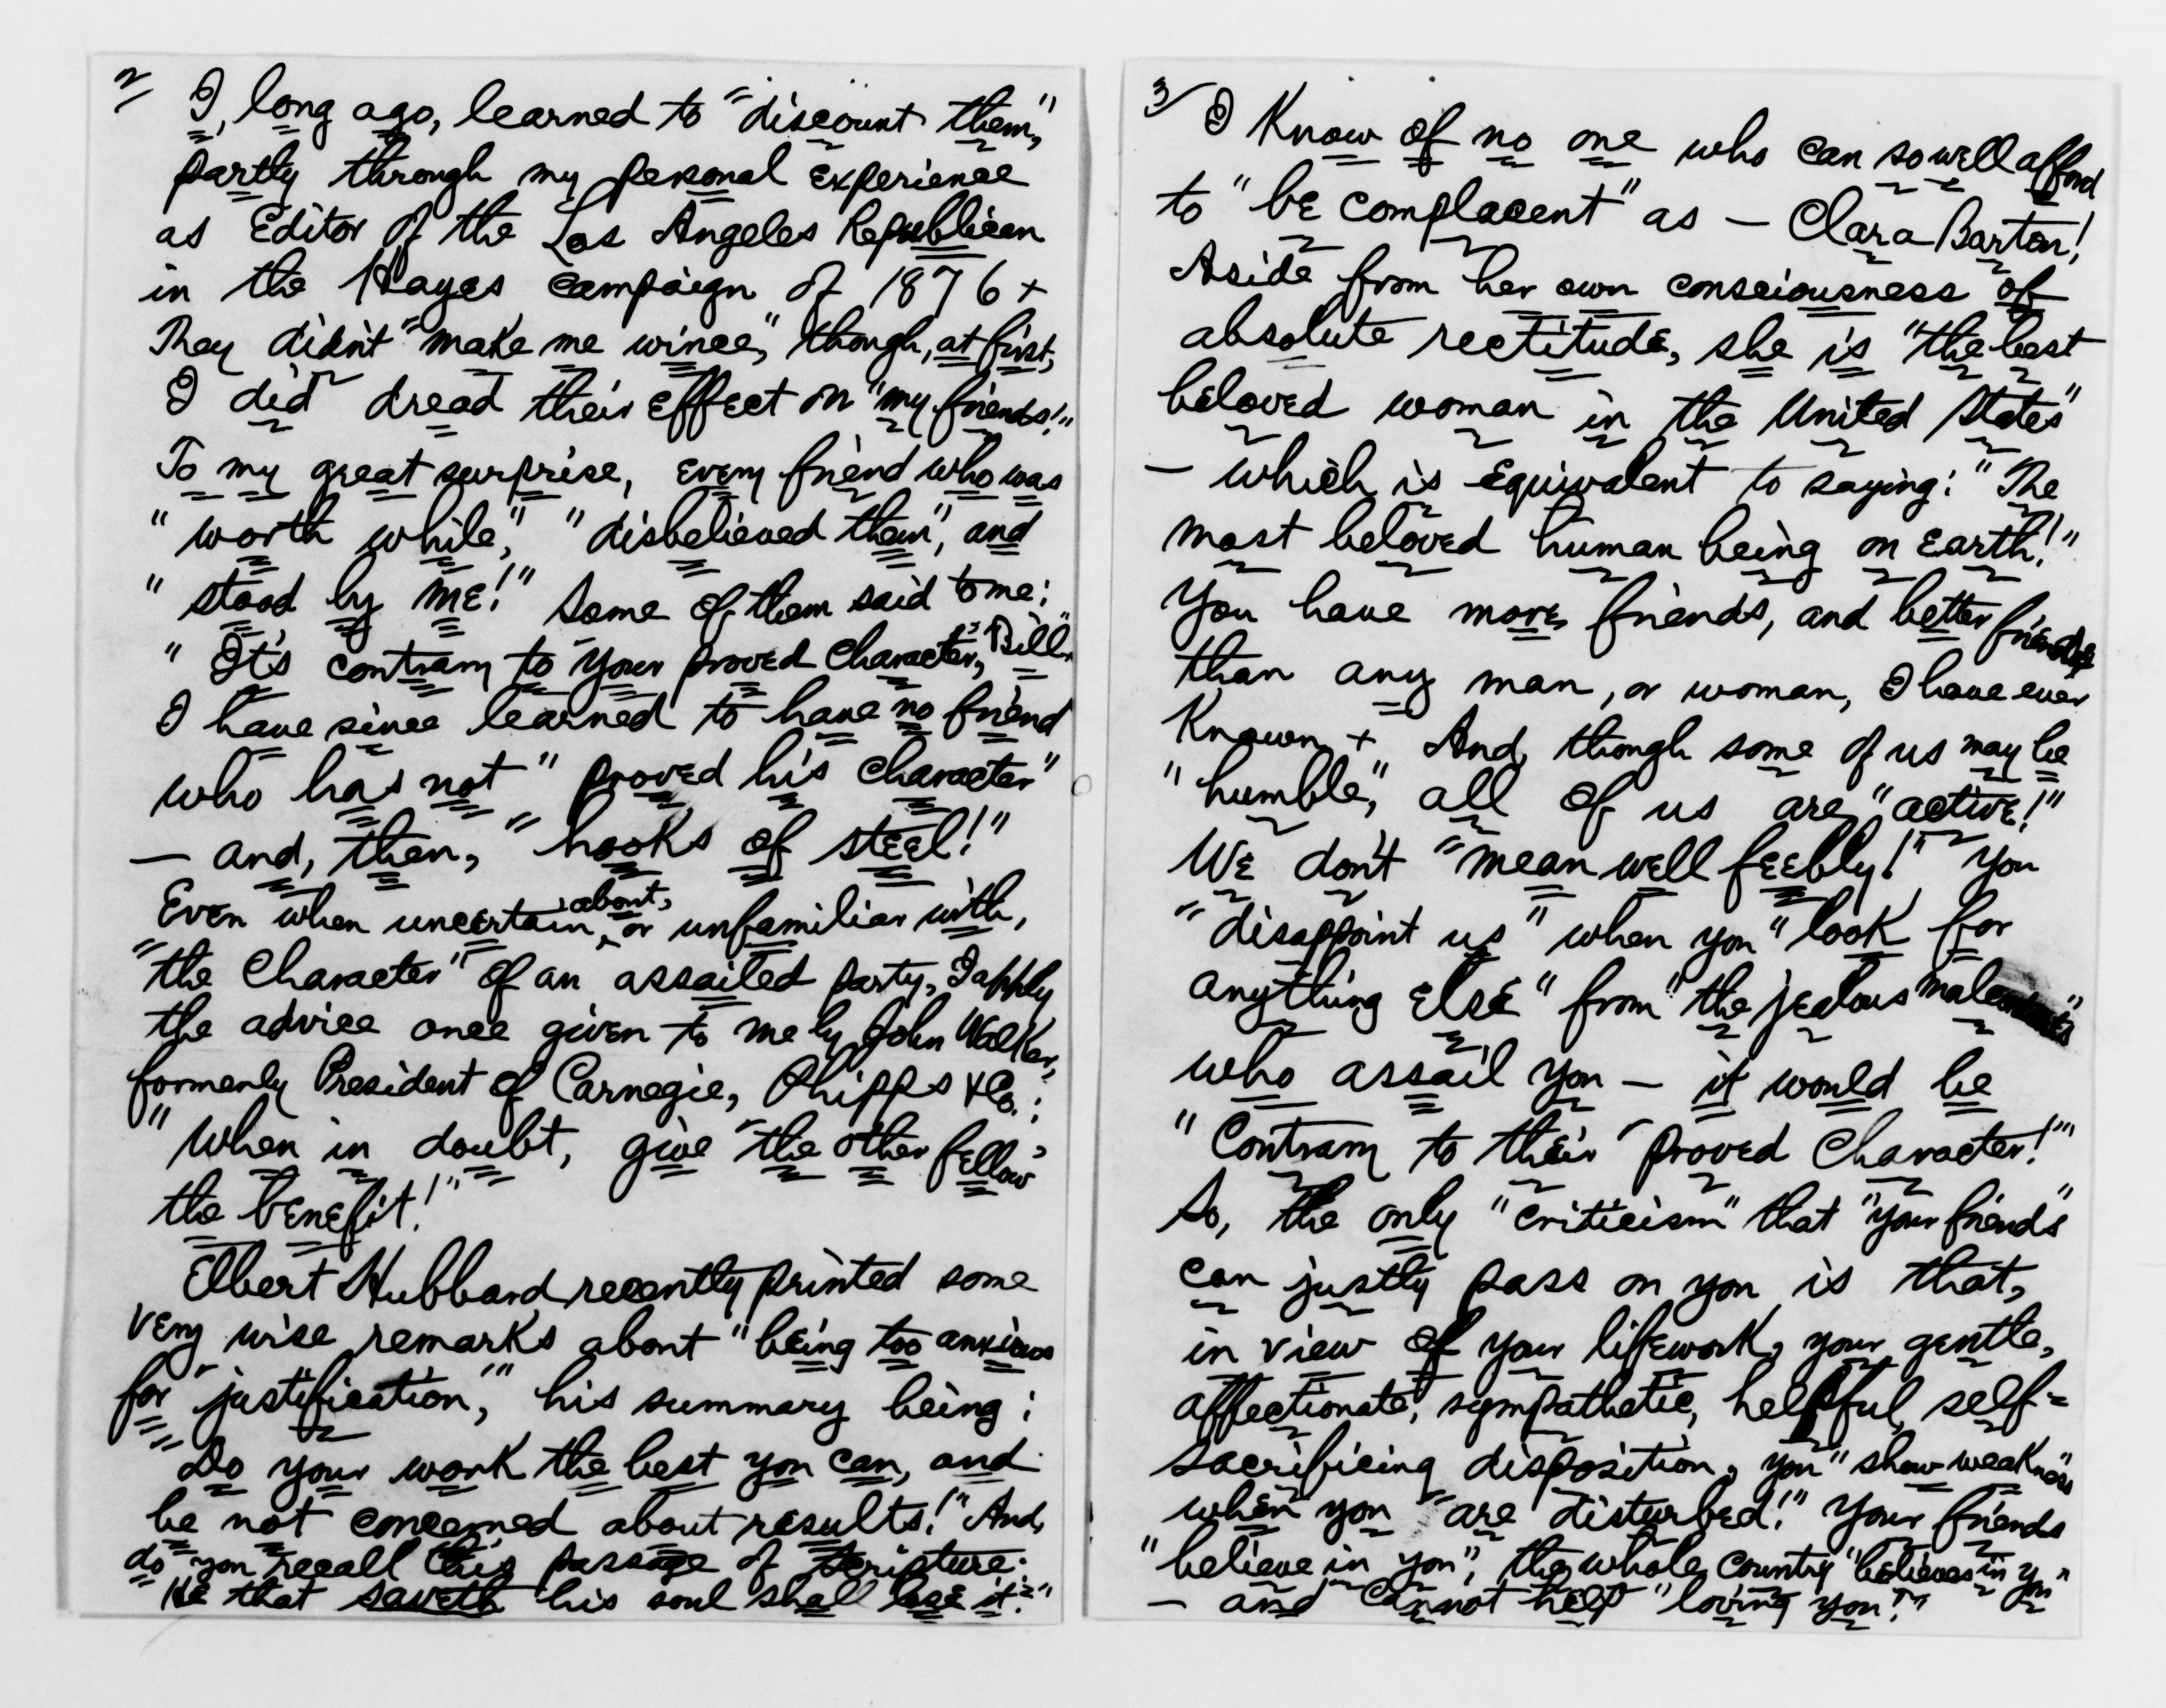 2/ I, long ago, learned to "discount them,"
partly through my personal experience
as Editor of the Los Angeles Republican
in the Hayes campaign of 1876 +
They didn't "make me wince," though, at first,
I did dread their effect on "my friends!"
To my great surprise, every friend who was
"worth while," "disbelieved them", and
"stood by me!" Some of them said to me:
"It's contrary to your proved character, 'Bill'"
I have since learned to have no friend
who has not "proved his character"
— and, then, "hooks of steel!"
Even when uncertain about, or unfamiliar with,
"the character" of an assailed party, I apply
the advice once given to me by John Walker,
formerly President of Carnegie, Phipps & Co.:
"When in doubt, give 'the other fellow'
the benefit!"
Elbert Hubbard recently printed some
very wise remarks about "being too anxious
for 'justification,'" his summary being:
"Do your work the best you can, and
be not concerned about results!" And,
do you recall this passage of Scripture:
"He that saveth his soul shall lose it?"
3/ I know of no one who can so well afford
to "be complacent" as — Clara Barton!
Aside from her own consciousness of
absolute rectitude, she is "the best
beloved woman in the United States"
— which is equivalent to saying: "The
most beloved human being on Earth!"
You have more friends, and better friends
than any man, or woman, I have ever
known + And, though some of us may be
"humble," all of us are "active!"
We don't "mean well feebly!" You
"disappoint us" when you "look for
anything else" from "the jealous
who assail you — it would be
"contrary to their 'proved character!'"
So, the only "criticism" that "your friends"
can justly pass on you is that,
in view of your lifework, your gentle,
affectionate, sympathetic, helpful, self-
sacrificing disposition, you "show weakness"
when you "are disturbed!" Your friends
"believe in you", the whole country "believes in you"
— and cannot help "loving you!"